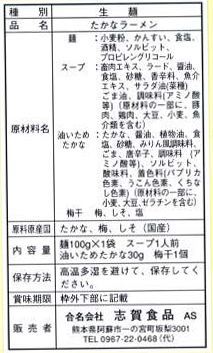 種別 生麺
品名 たかなラーメン
原材料名
麺 :小麦粉、かんすい、食塩、
酒精、ソルビット、
プロピレングリコール
スープ:畜肉エキス、ラード、醤油、
食塩、砂糖、香辛料、魚介
エキス、サラダ油(菜種)
ごま油、調味料(アミノ酸
等)(原材料の一部に、豚
肉、鶏肉、大豆、小麦、魚
介類を含む)
油いため:たかな、醤油、植物油、食
たかな 塩、砂糖、みりん風調味料、
ごま、唐辛子、調味料(ア
ミノ酸等)、ソルビット、
酸味料、着色料(パプリカ
色素、うこん色素、くちな
し色素)(原材料の一部に、小
麦、大豆、ゼラチンを含む)
梅干 :梅、しそ、塩
原料原産国 たかな、梅、しそ(国産)
内容量 麺100g×1袋 スープ1人前
油いためたかな30g 梅干1個
保存方法 高温多湿を避けて、保存してく
ださい。
賞味期限 枠外下部に記載
販売者 合名会社 志賀食品 AS
熊本県阿蘇市一の宮町坂梨3001
TEL 0967-22-0468(代)